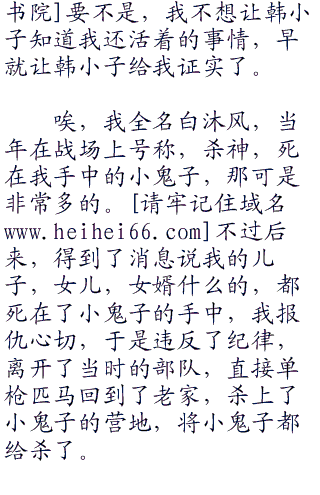 书院]要不是，我不想让韩小
子知道我还活着的事情，早
就让韩小子给我证实了。
唉，我全名白沐风，当
年在战场上号称，杀神，死
在我手中的小鬼子，那可是
非常多的。[请牢记住域名
www.heihei66.com]不过后
来，得到了消息说我的儿
子，女儿，女婿什么的，都
死在了小鬼子的手中，我报
仇心切，于是违反了纪律，
离开了当时的部队，直接单
枪匹马回到了老家，杀上了
小鬼子的营地，将小鬼子都
给杀了。